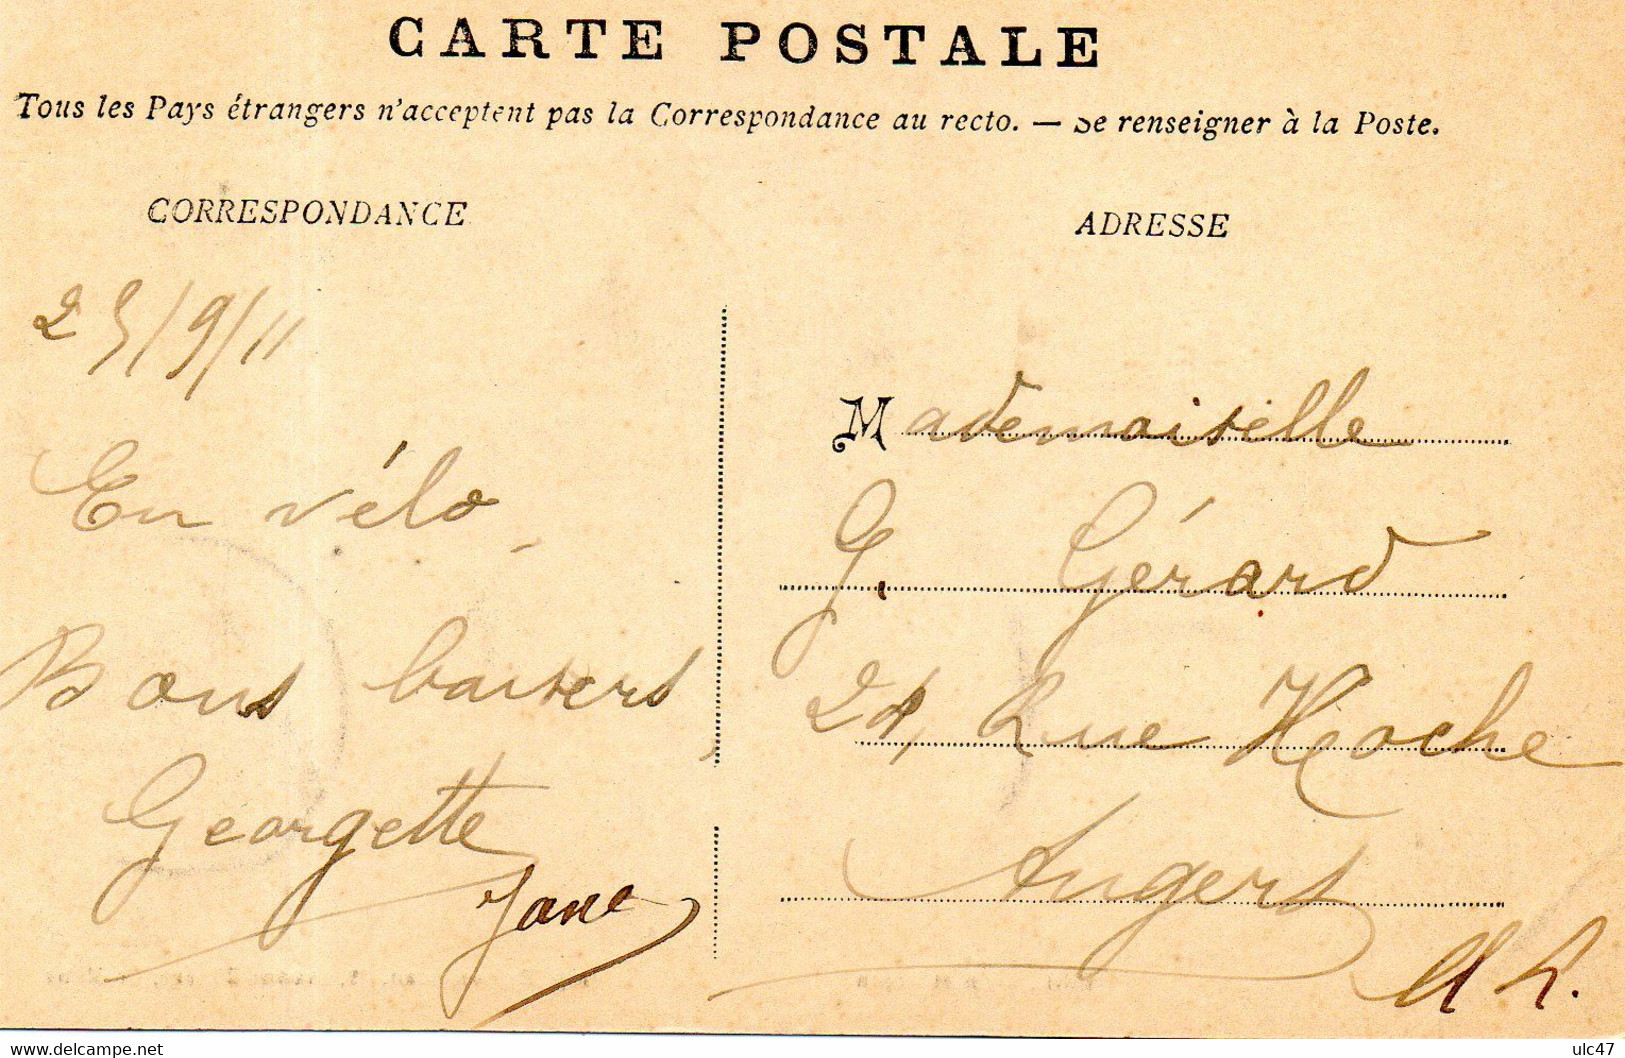 CARTE POSTALE
Tous les Pays étrangers n'acceptent pas la Correspondance au recto. — Se renseigner à la Poste.
CORRESPONDANCE
23/9/11
En vélo
Bons baisers
Georgette
Jane
ADRESSE
Mademoiselle
G. Gérard
Rue Hoche
Angers
M L.
delcampe.net
ulc47